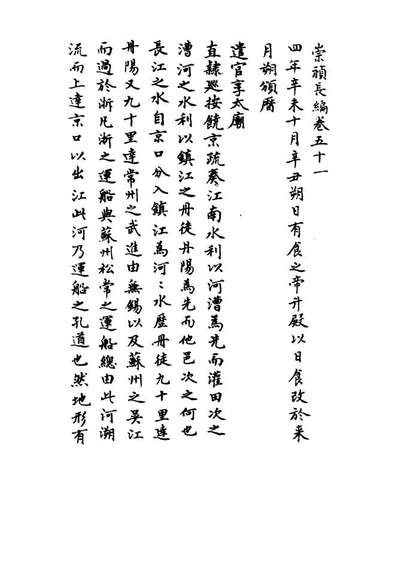 崇禎長編卷五十一
四年辛未十月辛丑朔日有食之帝升殿以日食改於来
月朔頒曆
遣官享太廟
直隸巡按饒京疏奏江南水利以河漕為先而灌田次之
漕河之水利以鎮江之丹徒丹陽為先而他邑次之何也
長江之水自京口分入鎮江為河〻水歷丹徒九十里達
丹陽又九十里達常州之武進由無錫以及蘇州之吳江
而過於浙凡浙之運船與蘇州松常之運船總由此河溯
流而上達京口以出江此河乃運船之孔道也然地形有